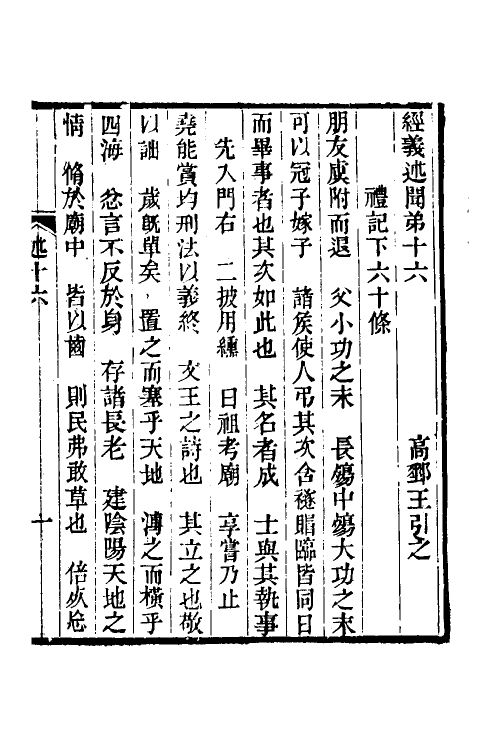 經義述聞弟十六 高郵王引之
禮記下六十條
朋友虞附而退 父小功之末 長殤中殤大功之末
可以冠子嫁子 諸矦使人弔其次含襚賵臨皆同日
而畢事者也其次如此也 其名者成 士與其執事
先入門右 二披用纁 曰祖考廟 享嘗乃止
堯能賞均刑法以義終 文王之詩也 其立之也敬
以詘 歲旣單矣 置之而塞乎天地 溥之而橫乎
四海 忿言不反於身 存諸長老 建陰陽天地之
情 脩於廟中 皆以齒 則民弗敢草也 倍必怨
述十六 一